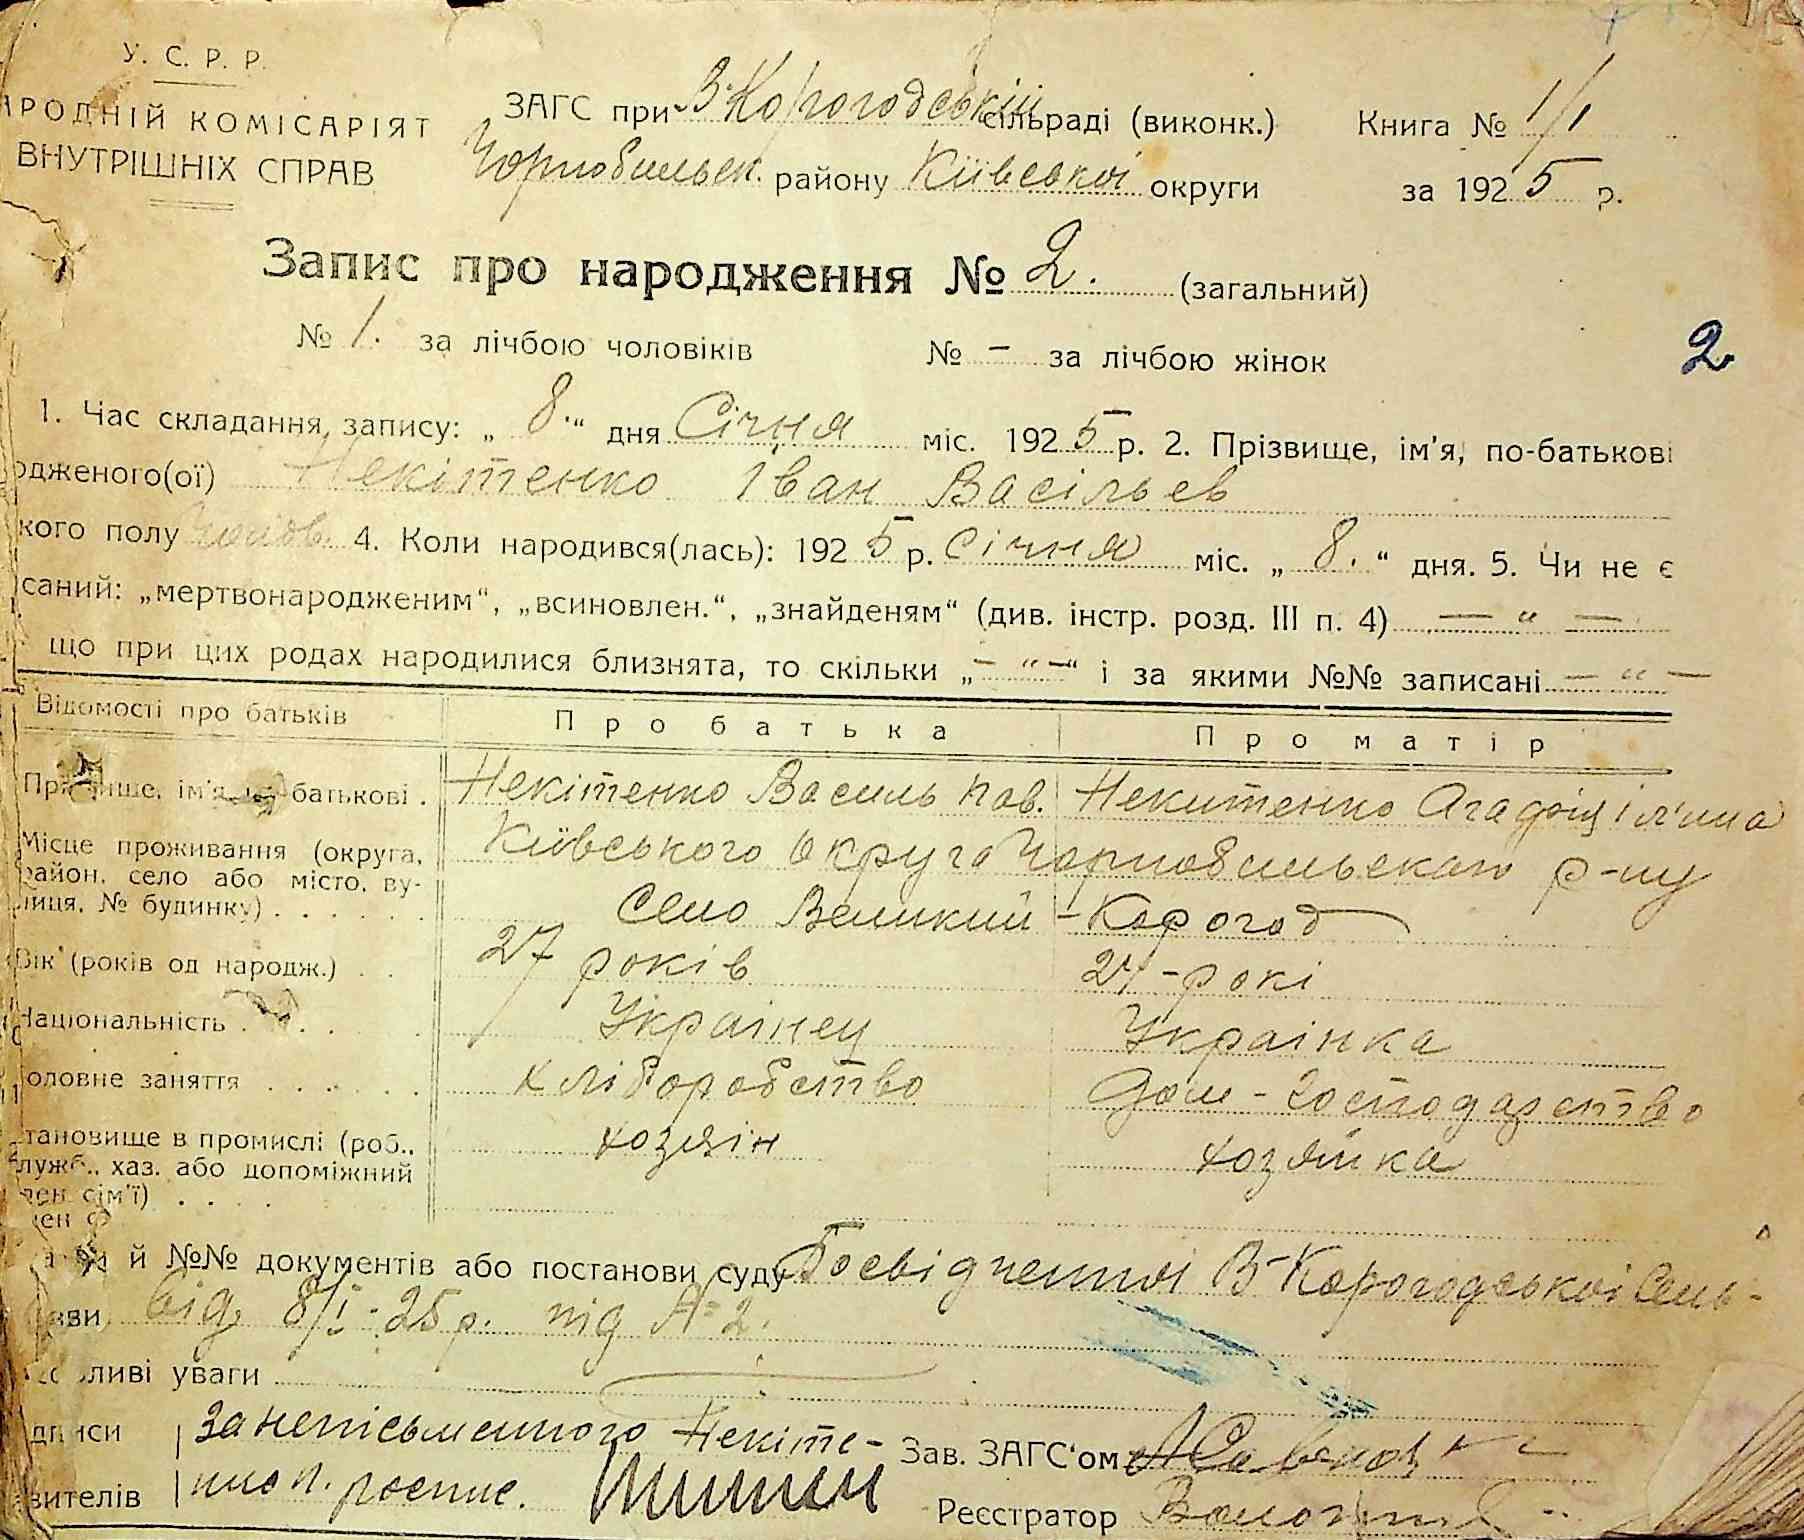 У. С. Р. Р.
АРОДНІЙ КОМІСАРІЯТ
ВНУТРІШНІХ СПРАВ
ЗАГС при В-Корогодській сільраді (виконк.) Книга № 1/1
Чорнобильск. району Київської округи за 1925 р.
Запис про народження № 2. (загальний)
№ 1. за лічбою чоловіків № - за лічбою жінок
2
1. Час складання запису: „ 8. “ дня Січня міс. 1925 р. 2. Прізвище, ім'я, по-батькові
одженого(ої) Некітенко Іван Васільев
кого полу чолов. 4. Коли народився(лась): 1925 р. Січня міс. „ 8. “ дня. 5. Чи не є
саний: „мертвонародженим“, „всиновлен.“, „знайденям“ (див. інстр. розд. III п. 4) — “ —
що при цих родах народилися близнята, то скільки „ - “ - “ і за якими №№ записані — “ —
Відомості про батьків Про батька Про матір
Прізвище, ім'я, по батькові . Некітенко Василь Пав. Некитенко
Місце проживання (округа, Київського округа Чорнобильскаго р-ну
район, село або місто, ву-
лиця, № будинку) . . . . . . Село Великий - Корогод
Вік (років од народж.) . . 27 років 24 - рокі
Національність . . . . . Українец Українка
оловне заняття . . . . . кліборобство Дом - господарство
тановище в промислі (роб., хозяін хозяйка
служб., хаз. або допоміжний
член сім'ї) . . . .
й №№ документів або постанови суду Посвідчення В-Корогодської Сель-
від 8/I - 25 р. під № 2.
ливі уваги
дписи За неписьменного Некіте- Зав. ЗАГС‘ом
вителів нко п. роспис. Реєстратор